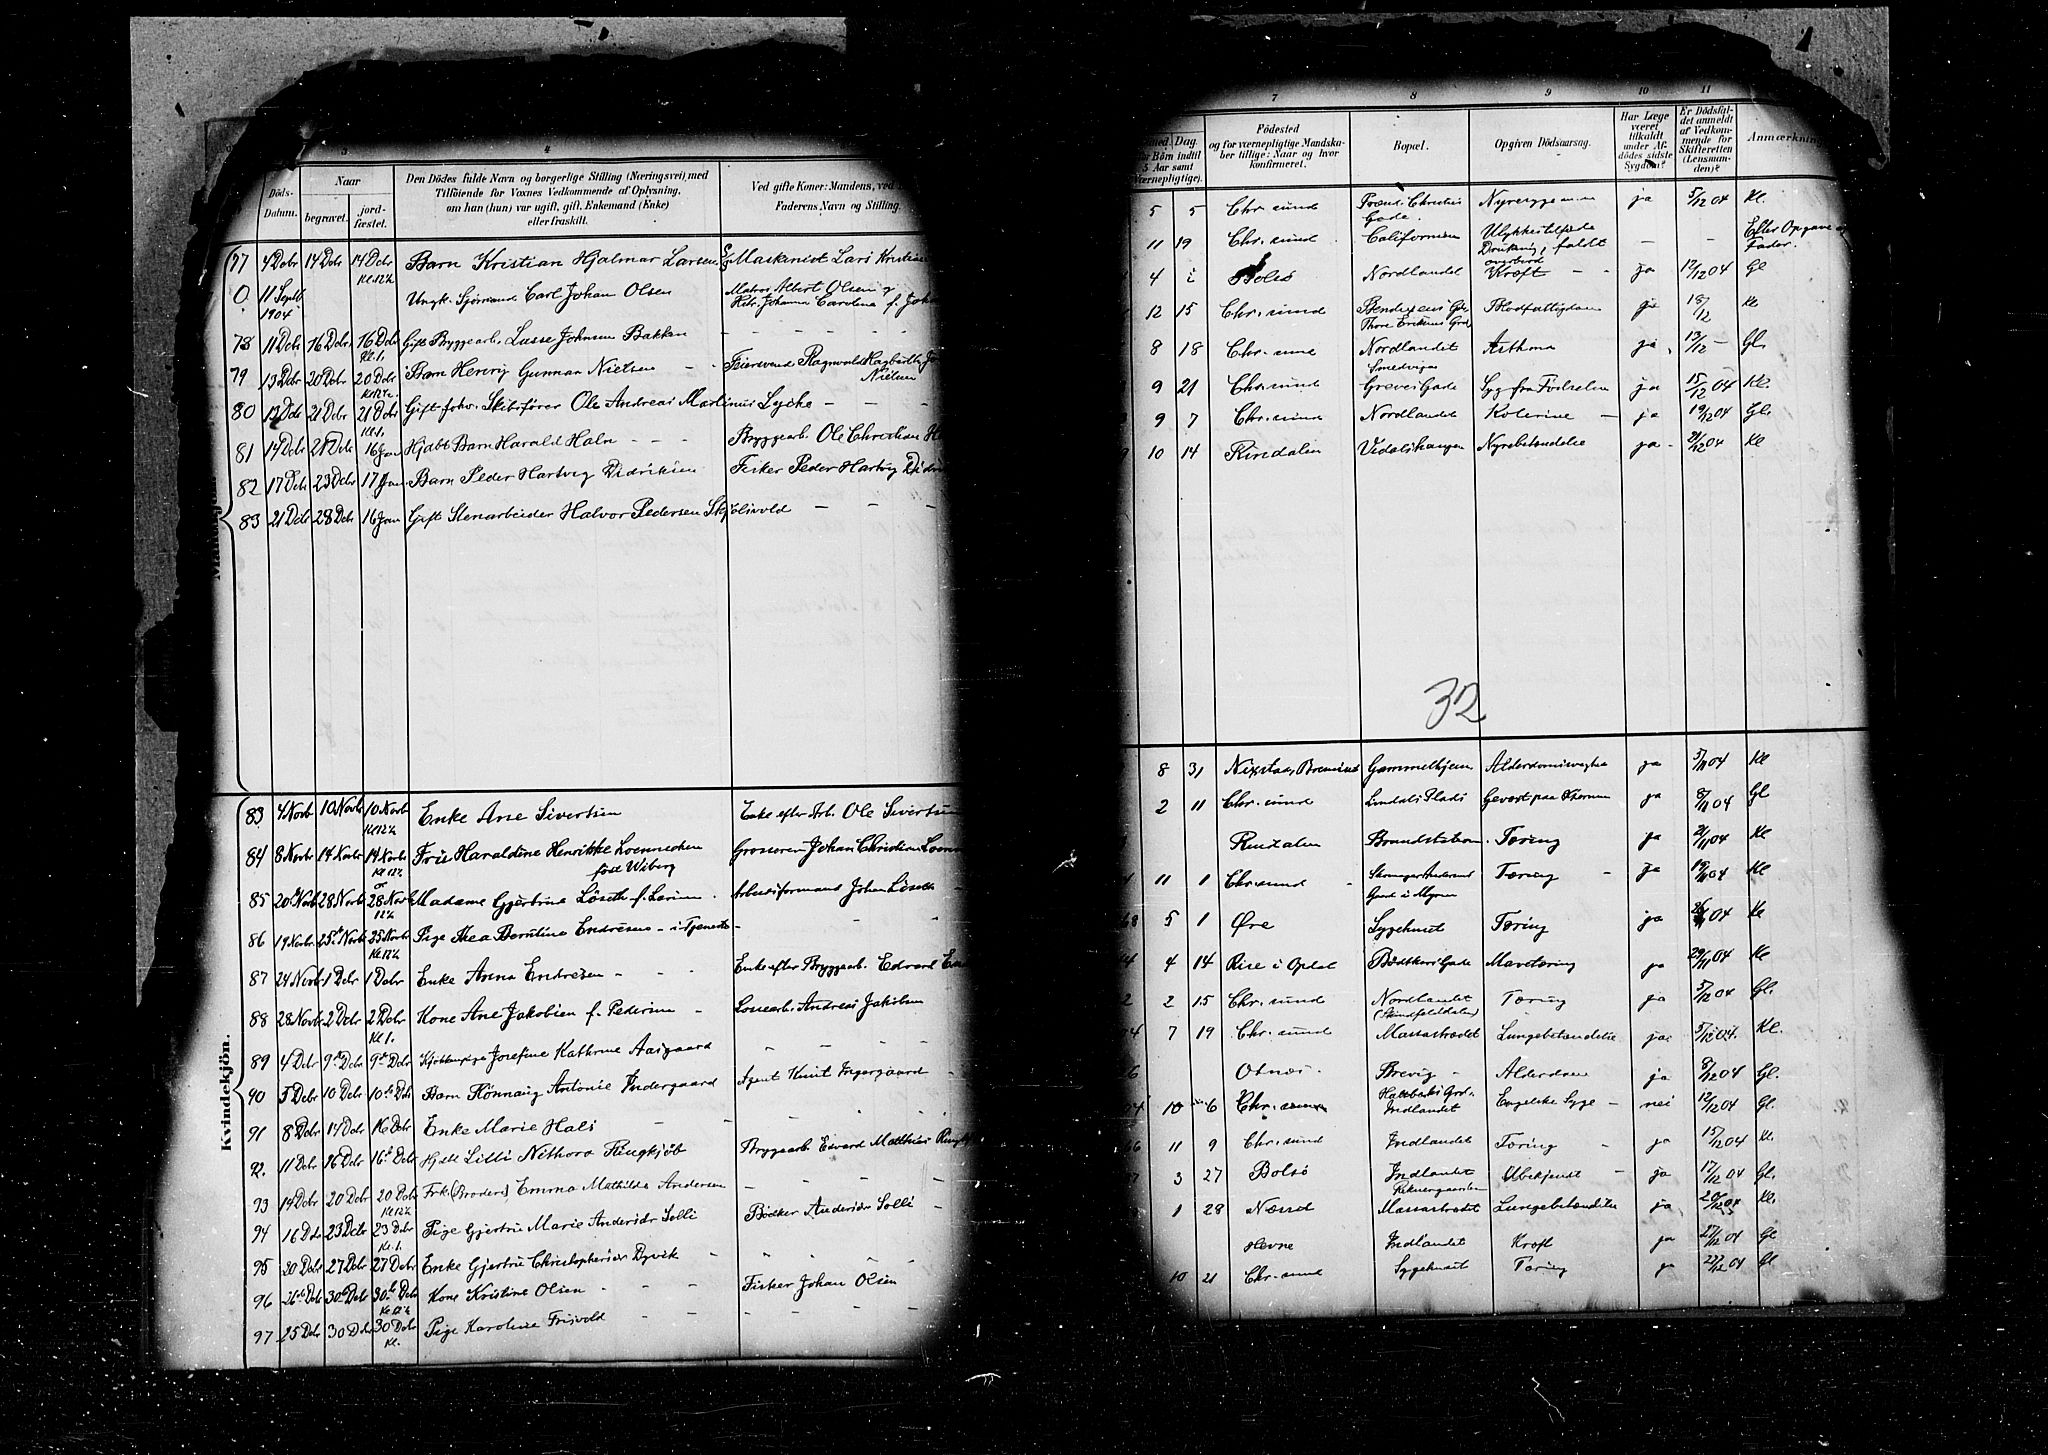 3
4
Döds-
Datum.
Naar
begravet.
jord-
fæstet.
Den Dödes fulde Navn og borgerlige Stilling (Næringsvei), med
Tilföiende for Voxnes Vedkommende af Oplysning,
om han (hun) var ugift, gift, Enkemand (Enke)
eller fraskilt.
Ved gifte Koner: Mandens, ved
Faderens Navn og Stilling.
77 4 Debr 14 Debr 14 Debr Kl 12½ Barn Kristian Hjalmar Larsen Maskinist Lars Kristian
0 11 Septb 1904 Ungk. Sjømand Carl Johan Olsen Matros Albert Olsen og
Hstr. Johanna Carolina f. Joh
78 11 Debr 16 Debr 16 Debr Kl. 1. Gift Bryggearb. Lasse Johnsen Bakken
79 13 Debr 20 Debr 20 Debr Kl 12½ Barn Henry Gunnar Nielsen Feiersvend Ragnvald Hagbarth
Nielsen
80 21 Debr 21 Debr Kl. 1. Gift forhv. Skibsfører Ole Andreas Martinus Lycke
81 14 Debr 21 Debr 16 Jan Hjdbt Barn Harald Haln Bryggearb. Ole Christian
82 17 Debr 23 Debr 17 Jan Barn Peder Hartvig Didriksen Fisker Peder Hartvig Didrik
83 21 Debr 28 Debr 16 Jan Gift Stenarbeider Halvor Pedersen Skjølsvold
Kvindekjön.
83 4 Novbr 10 Novbr 10 Novbr Kl 12½ Enke Ane Sivertsen Enke efter Arb. Ole Sivertsen
84 8 Novbr 14 Novbr 14 Novbr Kl 12½ Frue Haraldine Henrikke Loennechen Grosserer Johan Christian
født Wiberg
85 20 Novbr 28 Novbr 28 Novbr 12½ Madame Gjertrine Løseth f. Larsen Arbeidsformand Johan Løseth
86 19 Novbr 25 Novbr 25 Novbr Kl 12½ Pige Thea Berntine Endresen - i Tjeneste
87 24 Novbr 1 Debr 1 Debr Enke Anna Endresen Enke efter Bryggearb. Edvard
88 28 Novbr 2 Debr 2 Debr Kl 1. Kone Ane Jakobsen f. Pedersen Losearb. Andreas Jakobsen
89 4 Debr 9 Debr 9 Debr Kjøkkenpige Josefine Kathrine Aasgaard
90 5 Debr 10 Debr 10 Debr Barn Rönnaug Antonie Indergaard Agent Knut Indergaard
91 8 Debr 14 Debr 16 Debr Enke Marie Hals
92. 11 Debr 16 Debr 16 Debr Hjdbt Lilli Nithora Ringkjöb Bryggearb. Edvard Matthias
93 14 Debr 20 Debr 20 Debr Kl 12½ Frk. (Broderi) Emma Mathilde Andersen
94 16 Debr 23 Debr 23 Debr Kl. 1. Pige Gjertru Marie Andersdr Solli Bödker Anders Solli
95 20 Debr 27 Debr 27 Debr Enke Gjertru Christophersdr Dyvik
96 26 Debr 30 Debr 30 Debr Kl 12½ Kone Kristine Olsen Fisker Johan Olsen
97 25 Debr 30 Debr 30 Debr Kl. Pige Karoline Frisvold
7
8
9
10
11
Dag
for Börn indtil
5 Aar samt
Værnepligtige).
Födested
og for værnepligtige Mandska-
ber tillige: Naar og hvor
konfirmeret.
Bopæl.
Opgiven Dödsaarsag.
Har Læge
været
tilkaldt
under Af-
dödes sidste
Sygdom?
Er Dödsfal-
det anmeldt
af Vedkom-
mende for
Skifteretten
(Lensman-
den)?
Anmærkning
5 5 Chr. sund Christies Gade. ja 5/12 04 Kl.
11 19 Chr. sund Californien Ulykkestilfælde
Drukning, faldt overbord - - Efter Opgave af Fader.
4 Bolsø Nordlandet Kræft - - ja 12/12 04 Gl
12 15 Chr. sund Bendixens Gd. Blodfattigdom ja 18/12 Kl
8 18 Chr. sund Nordlandet Asthma ja 13/12 - Gl.
Smedvigen
9 21 Chr. sund Greves Gade Syg fra Fødselen ja 15/12 04 Kl.
9 7 Chr. sund Nordlandet Kolerine ja 19/12 04 Gl.
10 14 Rindalen Vidalshaugen Nyrebetændelse ja 21/12 04 Kl
32
8 31 Gammelhjem ja 5/11 04 Kl
2 11 Chr. sund ja 8/11 04 Gl
Rindalen Brandstation Tæring ja 21/11 04 Kl
11 1 Chr. sund Tæring ja 19/11 04 Kl
5 1 Øre Sygehuset Tæring ja 04 Kl
4 14 Rise i Opdal Bødtkers Gade Mavetæring ja 29/11 04 Kl
2 15 Chr. sund Nordlandet Tæring ja 5/12 04 Gl.
7 19 Chr. sund Massastrædet Lungebetændelse ja 5/12 04. Kl.
Otnes Brevig Alderdom ja 8/12 04 Gl.
10 6 Chr. sund Indlandet Engelske Syge nei 12/12 04 Gl.
11 9 Chr. sund Indlandet Tæring ja 15/12 04 Kl.
3 27 Bolsø Indlandet Ubekjendt ja 17/12 04 Gl.
1 28 Næsset Massastrædet Lungebetændelse ja 20/12 04 Kl.
Hevne Indlandet Kræft ja 27/12 04 Gl
10 21 Chr. sund Sygehuset Tæring ja 27/12 04 Gl